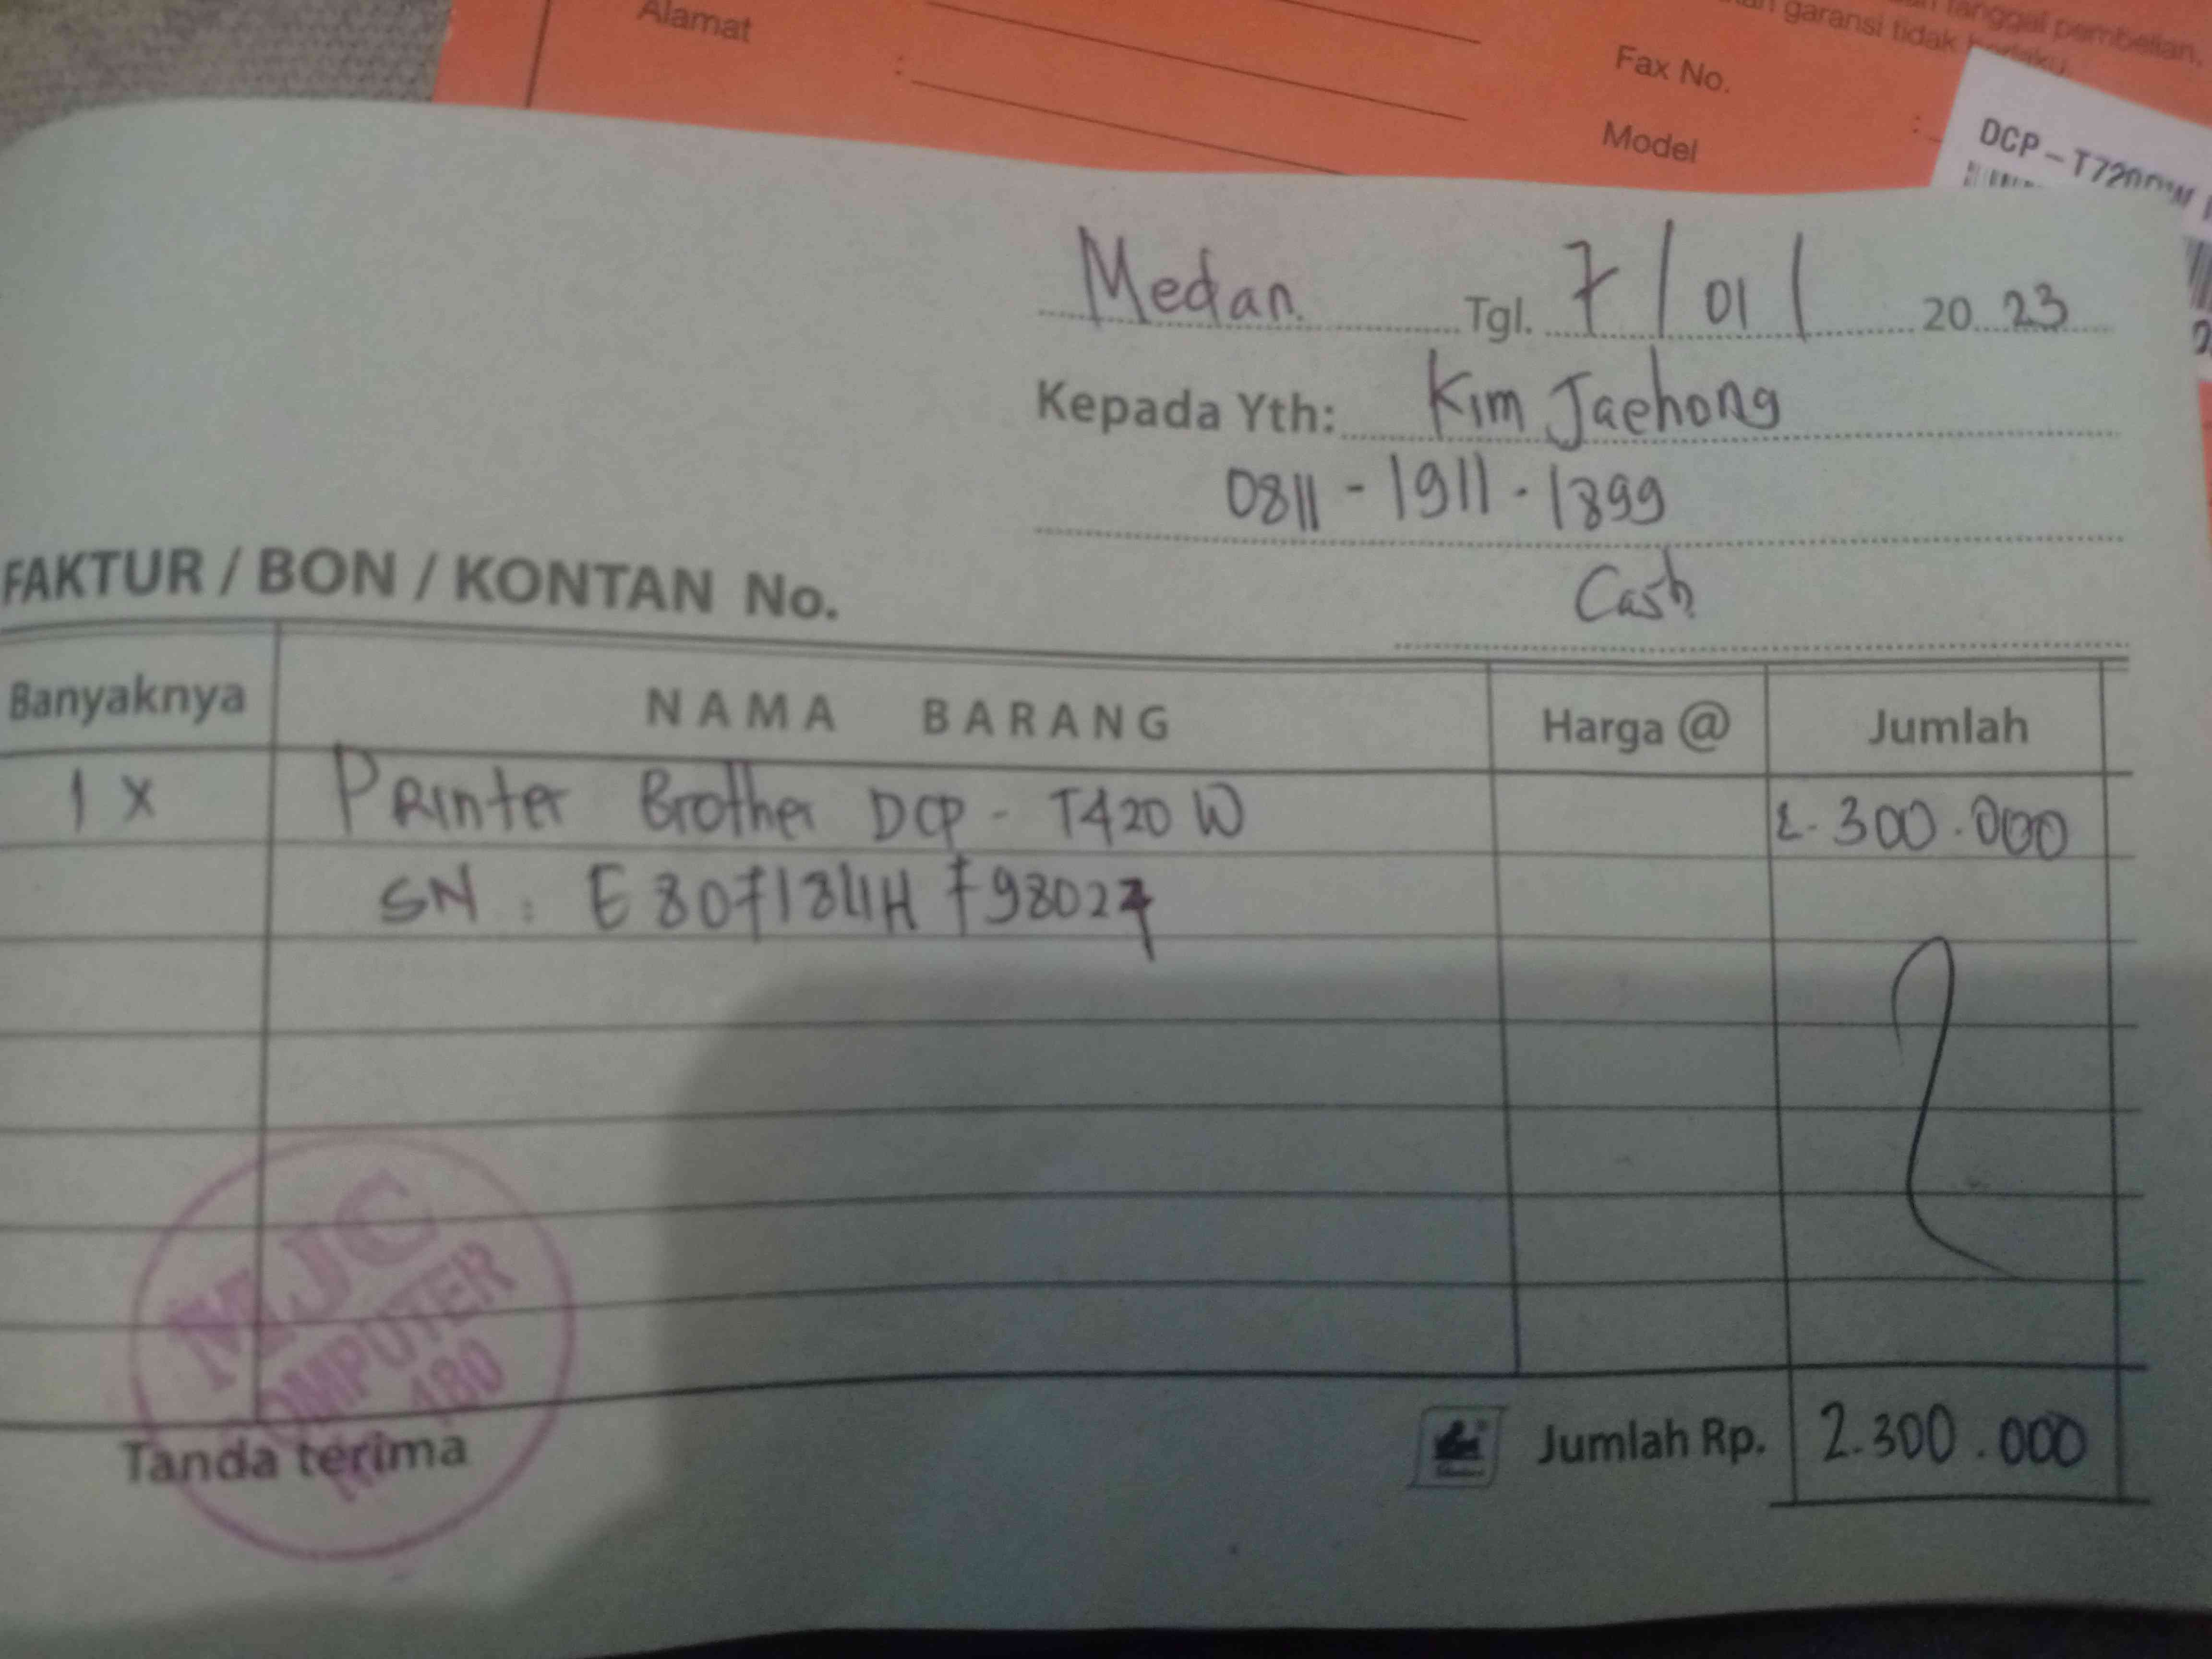 Alamat
:
Fax No.
Model
:
tanggal pembelian,
garansi tidak berlaku
DCP-T720DW
Medan. Tgl. 7/01/2023
Kepada Yth: Kim Jaehong
0811-1911.1899
FAKTUR / BON / KONTAN No.
Cash
Banyaknya NAMA BARANG Harga @ Jumlah
1 x Printer Brother DCP - T420 W 2.300.000
SN : E80718411H798027
MJC
COMPUTER
180
Tanda terima
Jumlah Rp. 2.300.000